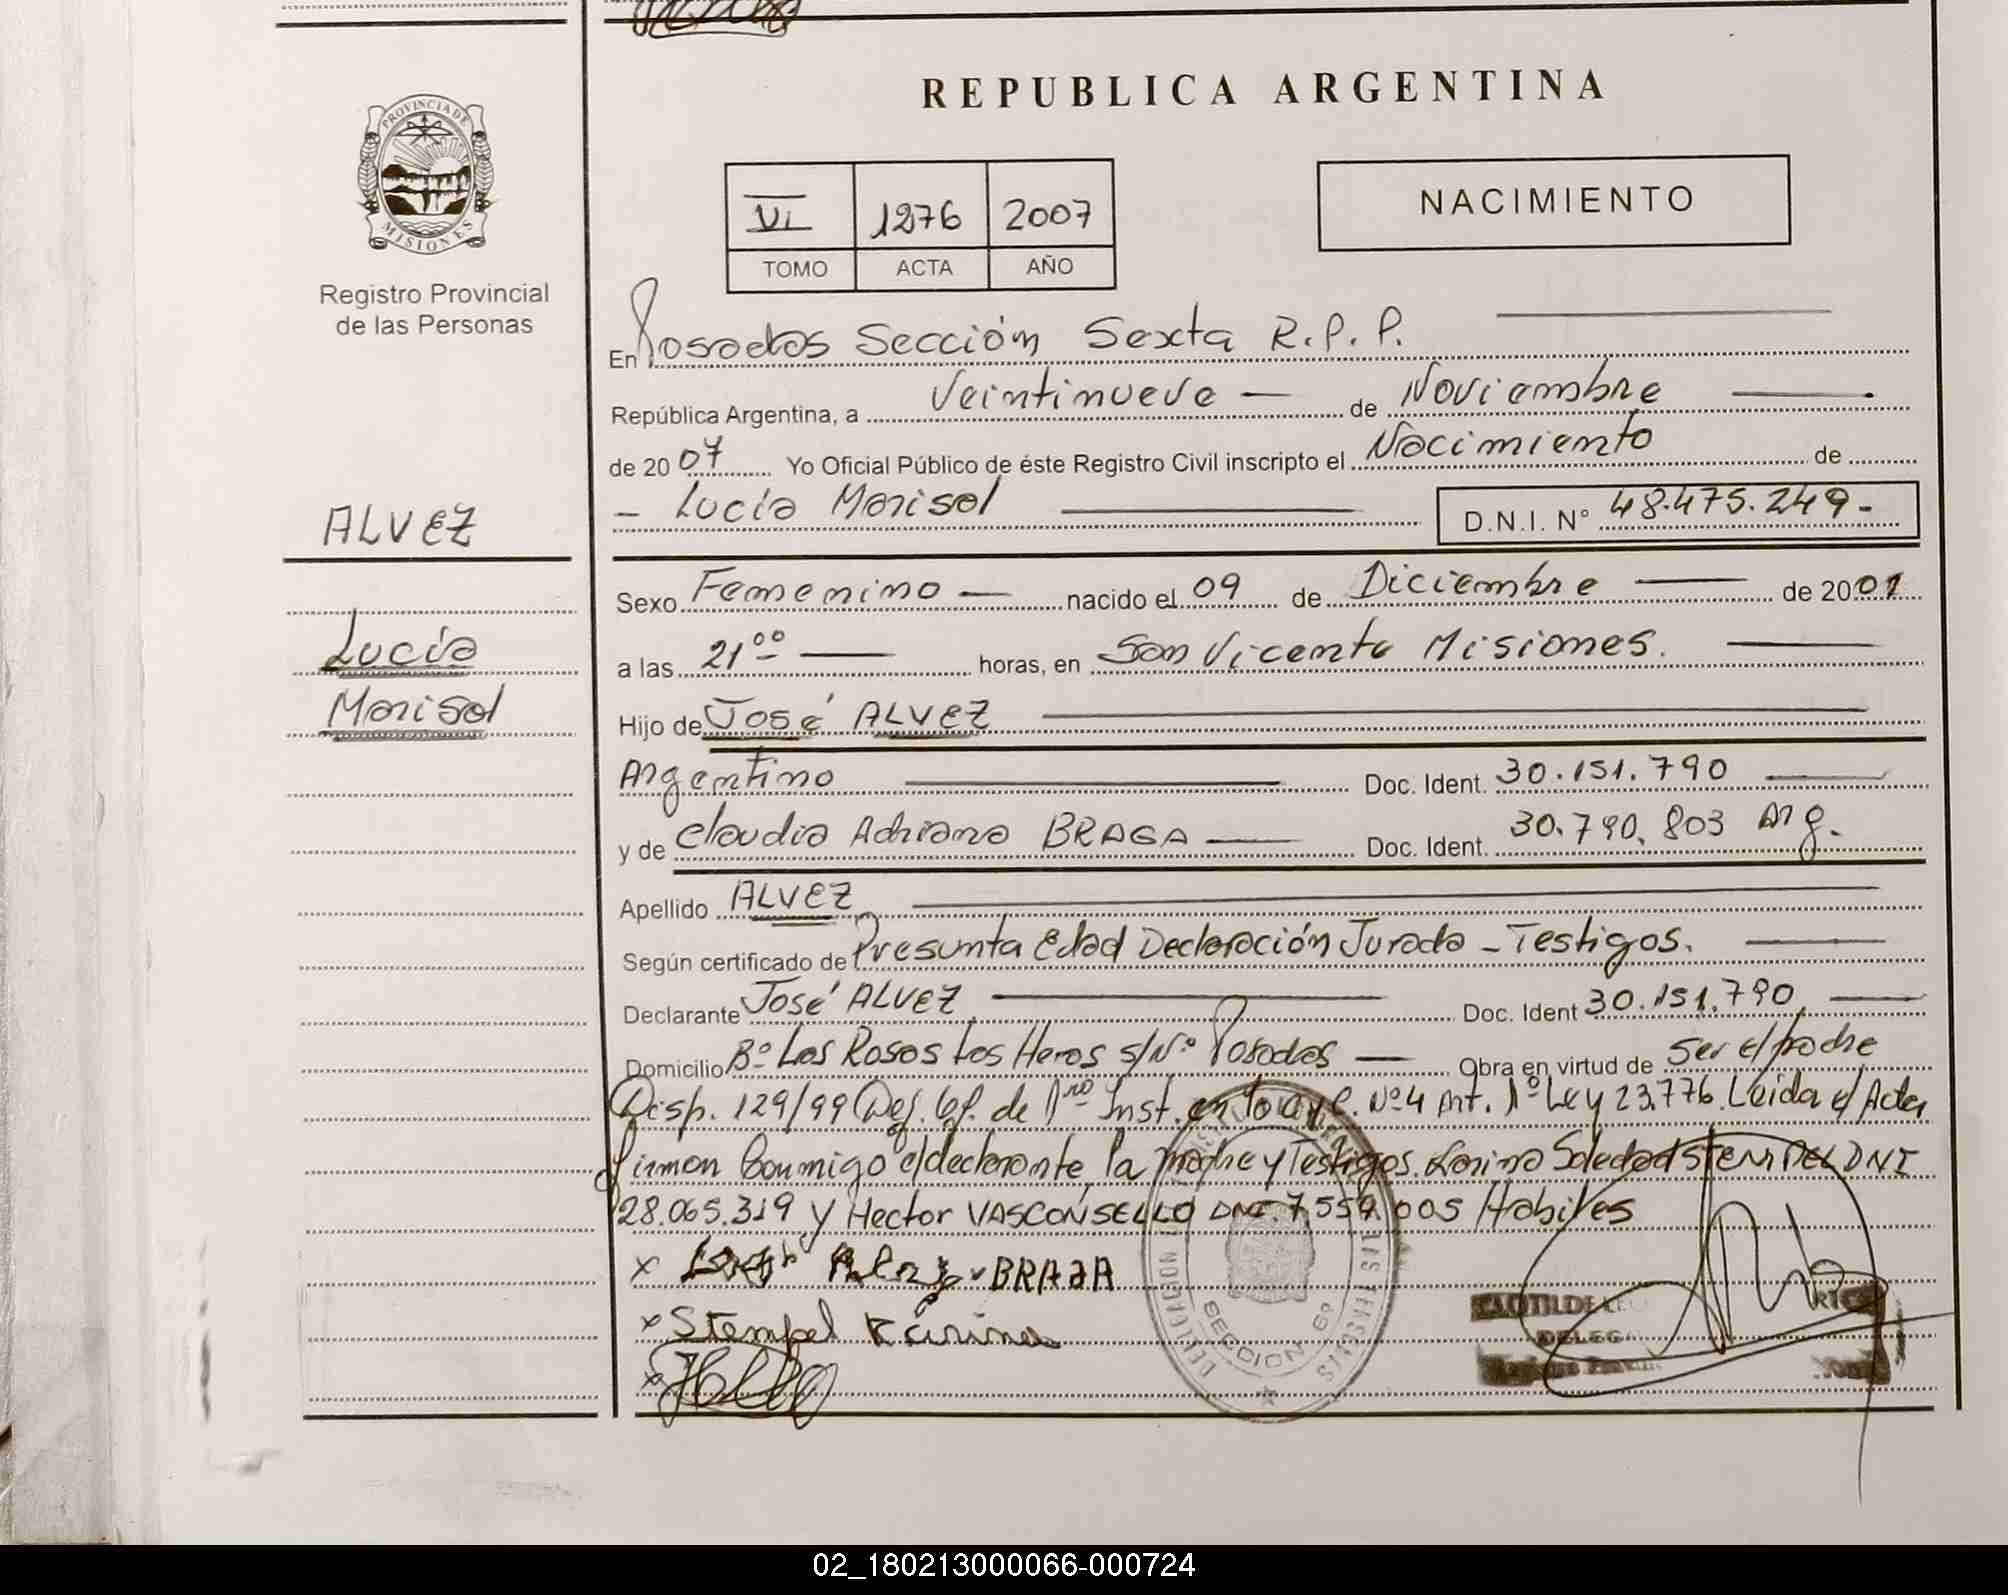 REPUBLICA ARGENTINA
PROVINCIA DE
MISIONES
Registro Provincial
de las Personas
VI 1276 2007
TOMO ACTA AÑO
NACIMIENTO
En Posadas Sección Sexta R.P.P.
República Argentina, a Veintinueve — de Noviembre
de 2007 Yo Oficial Público de éste Registro Civil inscripto el Nacimiento de
— Lucía Marisol D.N.I. N° 48.475.249.-
ALVEZ
Lucía
Marisol
Sexo Femenino — nacido el 09 de Diciembre — de 2001
a las 21⁰⁰ — horas, en San Vicente Misiones.
Hijo de José ALVEZ
Argentino Doc. Ident. 30.151.790
y de Claudia Adriana BRAGA — Doc. Ident. 30.790.803 Arg.
Apellido ALVEZ
Según certificado de Presunta Edad Declaración Jurada - Testigos.
Declarante José ALVEZ Doc. Ident 30.151.790
Domicilio Bº Las Rosas Las Heras s/Nº Posadas — Obra en virtud de Ser el padre
Disp. 129/99 Def. Of. de 1ra Inst. en lo Nº4 Art. 1º Ley 23.776. Leida el Acta
firman Conmigo el declarante, la madre y Testigos. Karina Soledad STEMPEL DNI
28.065.319 y Hector VASCONSELLO DNI. 7.559.005 Habiles
x BRAGA
x Stempel Karina
x
DELEGACION
SECCION 6º
02_180213000066-000724